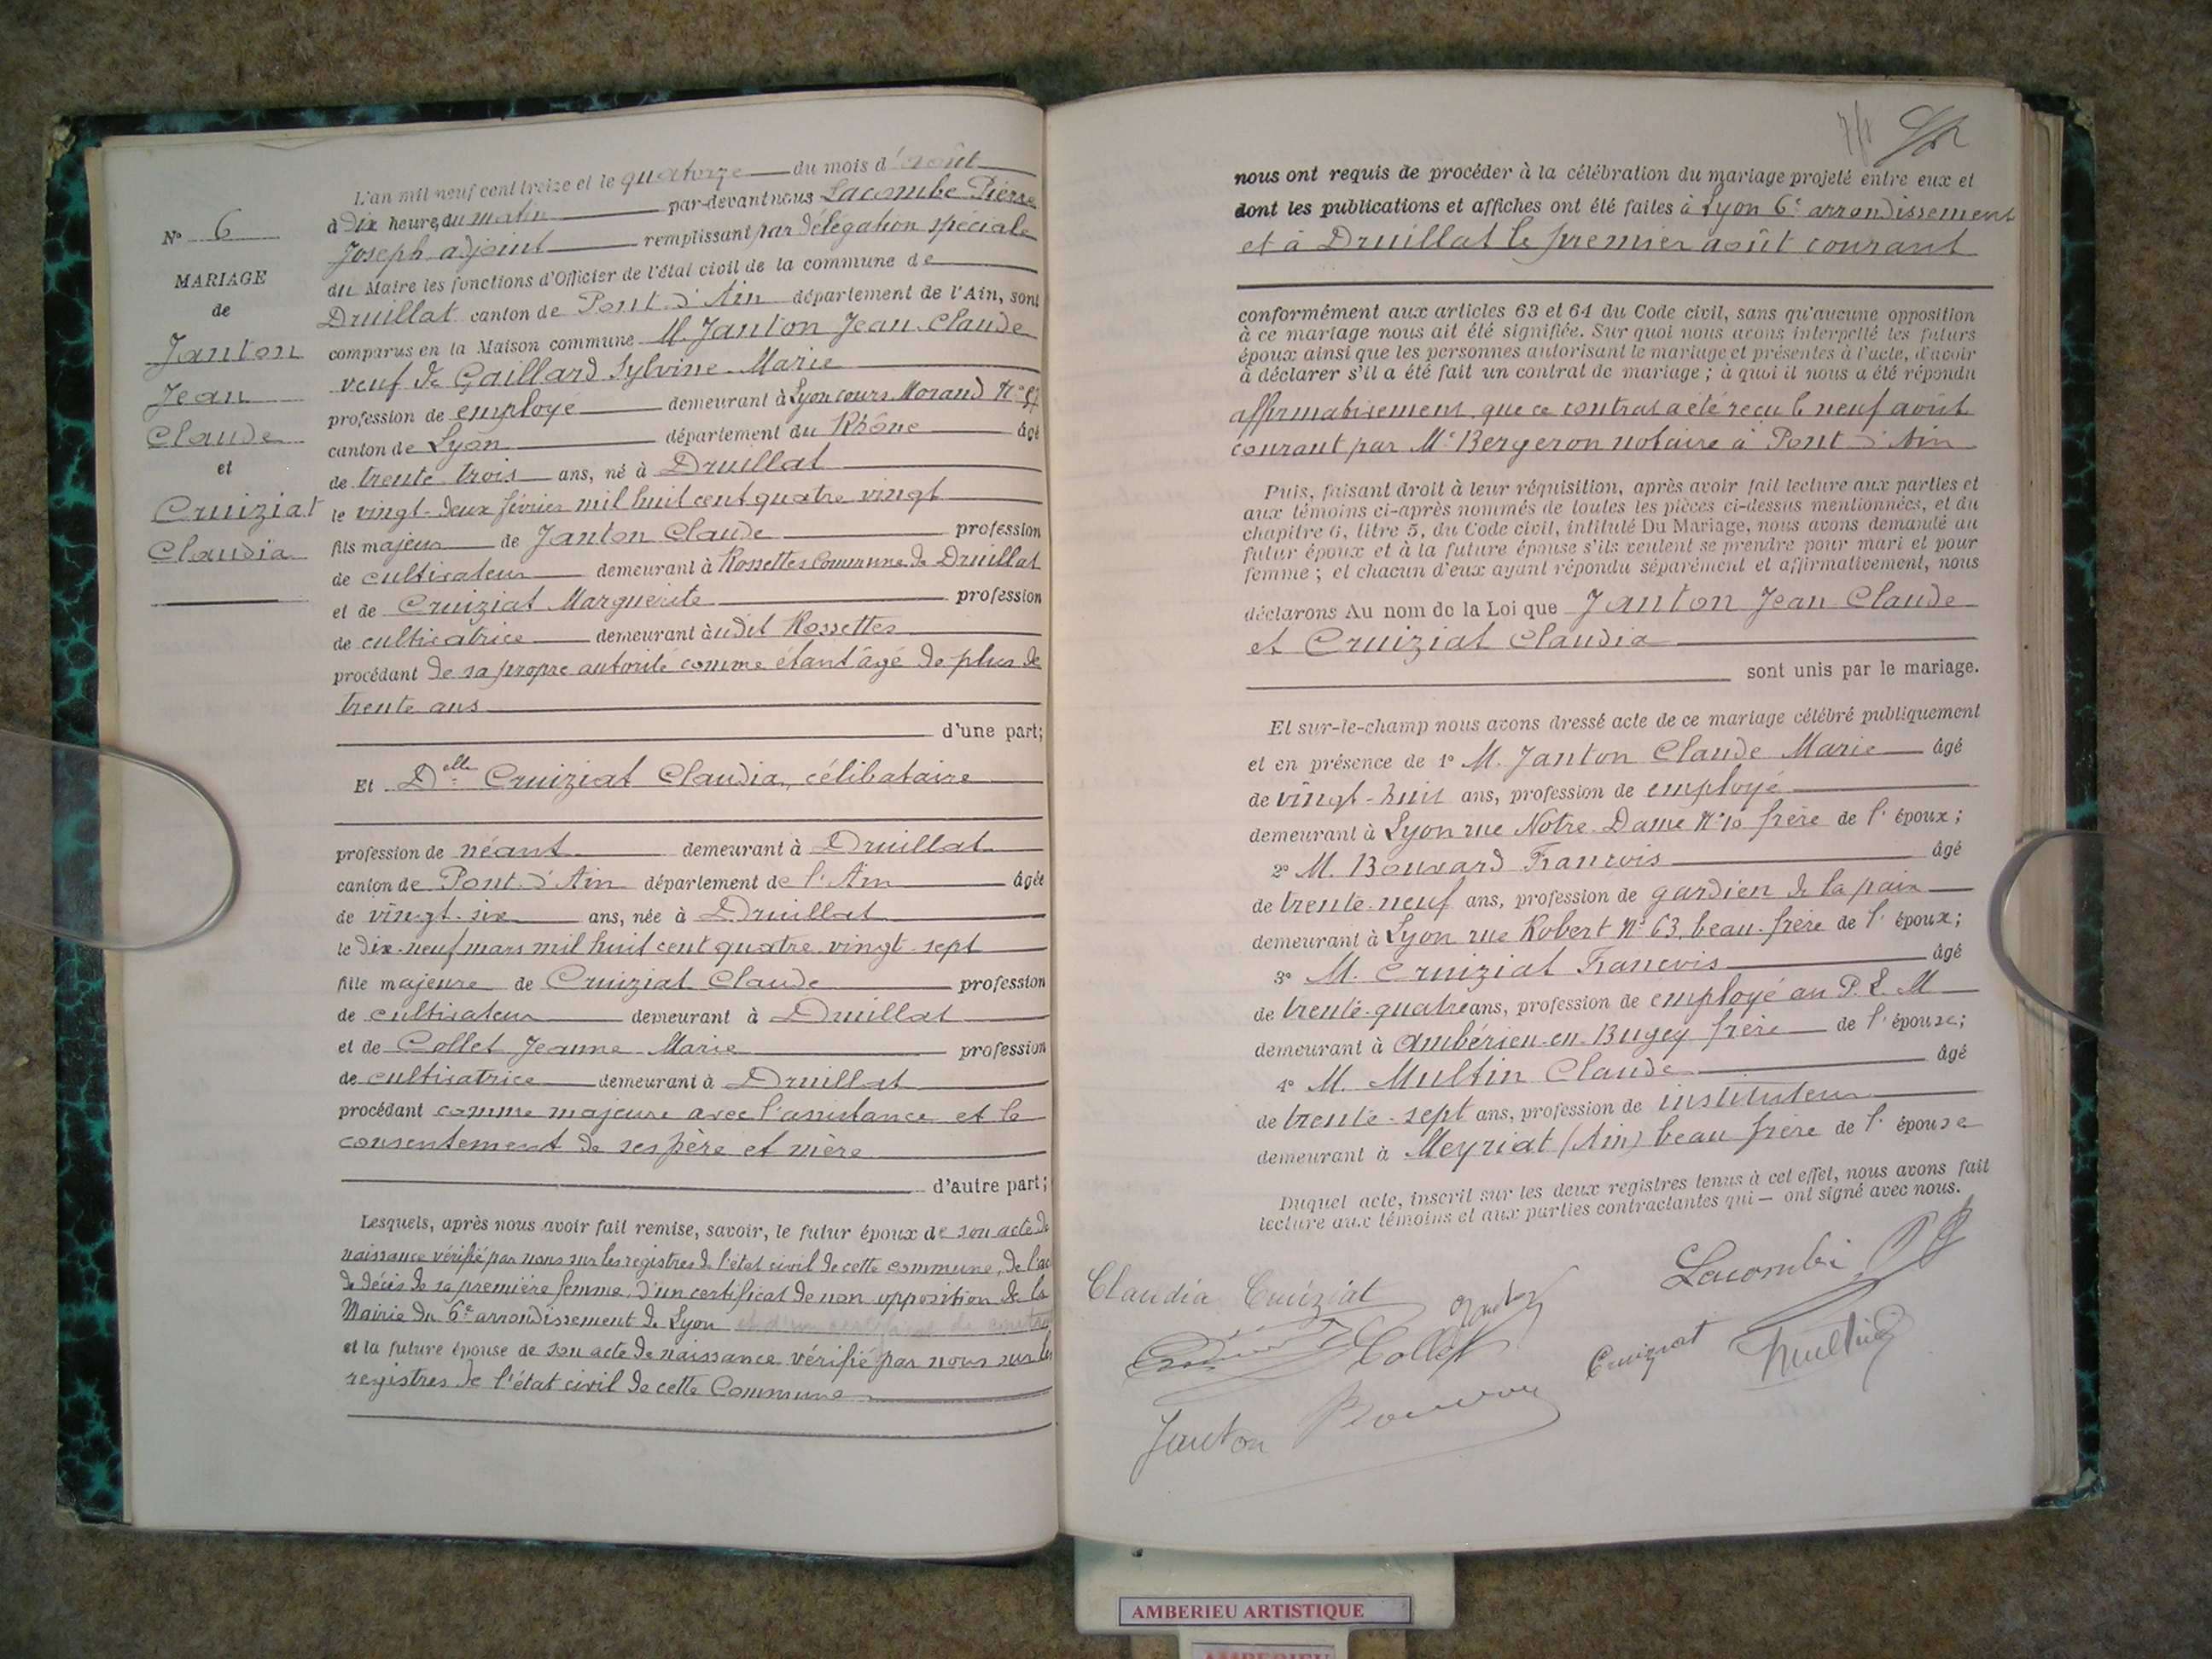 N° 6
MARIAGE
de
Janton
Jean
Claude
et
Cruiziat
Claudia
L'an mil neuf cent treize et le quatorze du mois d'août
à Dix heure, du matin par-devant nous Lacombe Pierre
Joseph adjoint remplissant par délégation spéciale
du Maire les fonctions d'Officier de l'état civil de la commune de
Druillat canton de Pont d'Ain département de l'Ain, sont
comparus en la Maison commune M. Janton Jean Claude
veuf de Gaillard Sylvine Marie
profession de employé demeurant à Lyon cours Morand N°
canton de Lyon département du Rhône âgé
de trente trois ans, né à Druillat
le vingt-deux février mil huit cent quatre vingt
fils majeur de Janton Claude profession
de cultivateur demeurant à Rossettes Commune de Druillat
et de Cruiziat Marguerite profession
de cultivatrice demeurant àudit Rossettes
procédant de sa propre autorité comme étant âgé de plus de
trente ans
d'une part;
Et Delle Cruiziat Claudia, célibataire
profession de néant demeurant à Druillat
canton de Pont d'Ain département de l'Ain âgée
de vingt-six ans, née à Druillat
le Dix-neuf mars mil huit cent quatre vingt-sept
fille majeure de Cruiziat Claude profession
de cultivateur demeurant à Druillat
et de Collet Jeanne Marie profession
de cultivatrice demeurant à Druillat
procédant comme majeure avec l'assistance et le
consentement de ses père et mère
d'autre part;
Lesquels, après nous avoir fait remise, savoir, le futur époux de son acte de
naissance vérifié par nous sur les registres de l'état civil de cette commune, de l'ac
de décès de sa première femme, d'un certificat de non opposition de la
Mairie du 6e arrondissement de Lyon et d'un certificat de
et la future épouse de son acte de naissance vérifié par nous sur les
registres de l'état civil de cette Commune
nous ont requis de procéder à la célébration du mariage projeté entre eux et
dont les publications et affiches ont été faites à Lyon 6e arrondissement
et à Druillat le premier août courant
conformément aux articles 63 et 64 du Code civil, sans qu'aucune opposition
à ce mariage nous ait été signifiée. Sur quoi nous avons interpellé les futurs
époux ainsi que les personnes autorisant le mariage et présentes à l'acte, d'avoir
à déclarer s'il a été fait un contrat de mariage ; à quoi il nous a été répondu
affirmativement, que ce contrat a été reçu le neuf août
courant par Me Bergeron notaire à Pont d'Ain
Puis, faisant droit à leur réquisition, après avoir fait lecture aux parties et
aux témoins ci-après nommés de toutes les pièces ci-dessus mentionnées, et du
chapitre 6, titre 5, du Code civil, intitulé Du Mariage, nous avons demandé au
futur époux et à la future épouse s'ils veulent se prendre pour mari et pour
femme ; et chacun d'eux ayant répondu séparément et affirmativement, nous
déclarons Au nom de la Loi que Janton Jean Claude
et Cruiziat Claudia
sont unis par le mariage.
Et sur-le-champ nous avons dressé acte de ce mariage célébré publiquement
et en présence de 1° M. Janton Claude Marie âgé
de vingt-huit ans, profession de employé
demeurant à Lyon rue Notre-Dame N°10 frère de l'époux ;
2° M. Bouvard Francois âgé
de trente-neuf ans, profession de gardien de la paix
demeurant à Lyon rue Robert N° 63, beau-frère de l'époux ;
3° M. Cruiziat Francois âgé
de trente-quatre ans, profession de employé au P. L. M
demeurant à Ambérieu-en-Bugey frère de l'épouse ;
4° M. Multin Claude âgé
de trente-sept ans, profession de instituteur
demeurant à Meyriat (Ain) beau frère de l'épouse
Duquel acte, inscrit sur les deux registres tenus à cet effet, nous avons fait
lecture aux témoins et aux parties contractantes qui — ont signé avec nous.
Lacombe PJ
Claudia Cruiziat Janton
Collet Cruiziat Multin
Janton Bouvard
AMBERIEU ARTISTIQUE
AMBERIEU